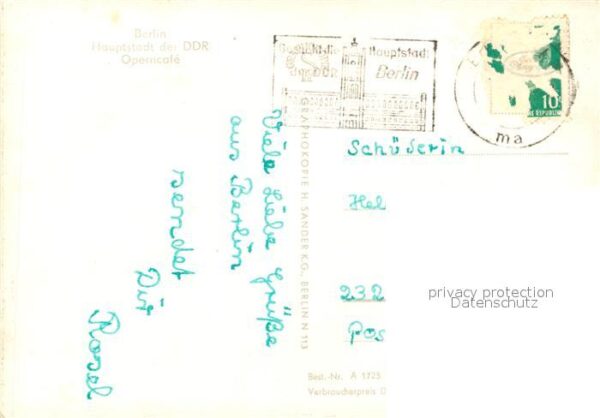 Berlin
Hauptstadt der DDR
Operncafé
Hauptstadt
der DDR Berlin
10
REPUBLIK
ma
Viele liebe Grüße
aus Berlin
sendet
Dir
Rosel
GRAPHOKOPIE H. SANDER K.G., BERLIN N 113
Schülerin
Hel
232
Pos
privacy protection
Datenschutz
Best.-Nr. A 1725
Verbraucherpreis